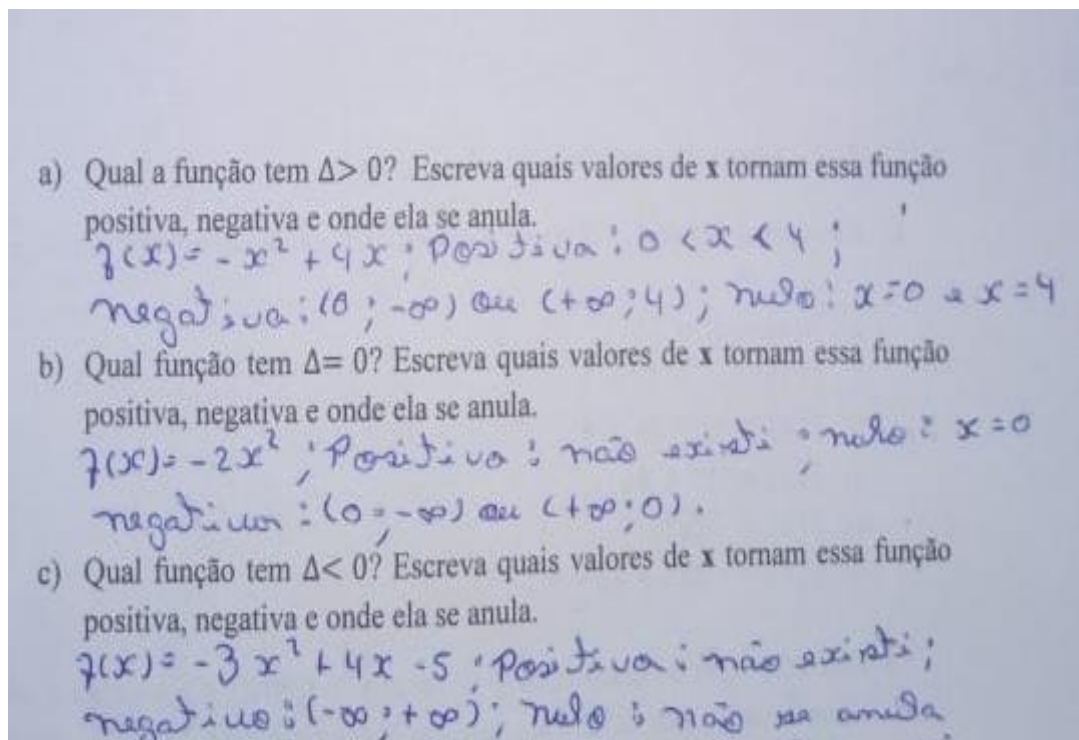 a) Qual a função tem Δ> 0? Escreva quais valores de x tornam essa função
positiva, negativa e onde ela se anula.
f(x)= -x² + 4x ; Positiva : 0 < x < 4 ;
negativa : (0 ; -∞) ou (+∞ ; 4) ; nulo : x=0 e x=4
b) Qual função tem Δ= 0? Escreva quais valores de x tornam essa função
positiva, negativa e onde ela se anula.
f(x)= -2x² ; Positiva : não existi ; nulo : x=0
negativa : (0 ; -∞) ou (+∞ ; 0).
c) Qual função tem Δ< 0? Escreva quais valores de x tornam essa função
positiva, negativa e onde ela se anula.
f(x)= -3x² + 4x -5 ; Positiva : não existi ;
negativo : (-∞ ; +∞) ; nulo : não se anula